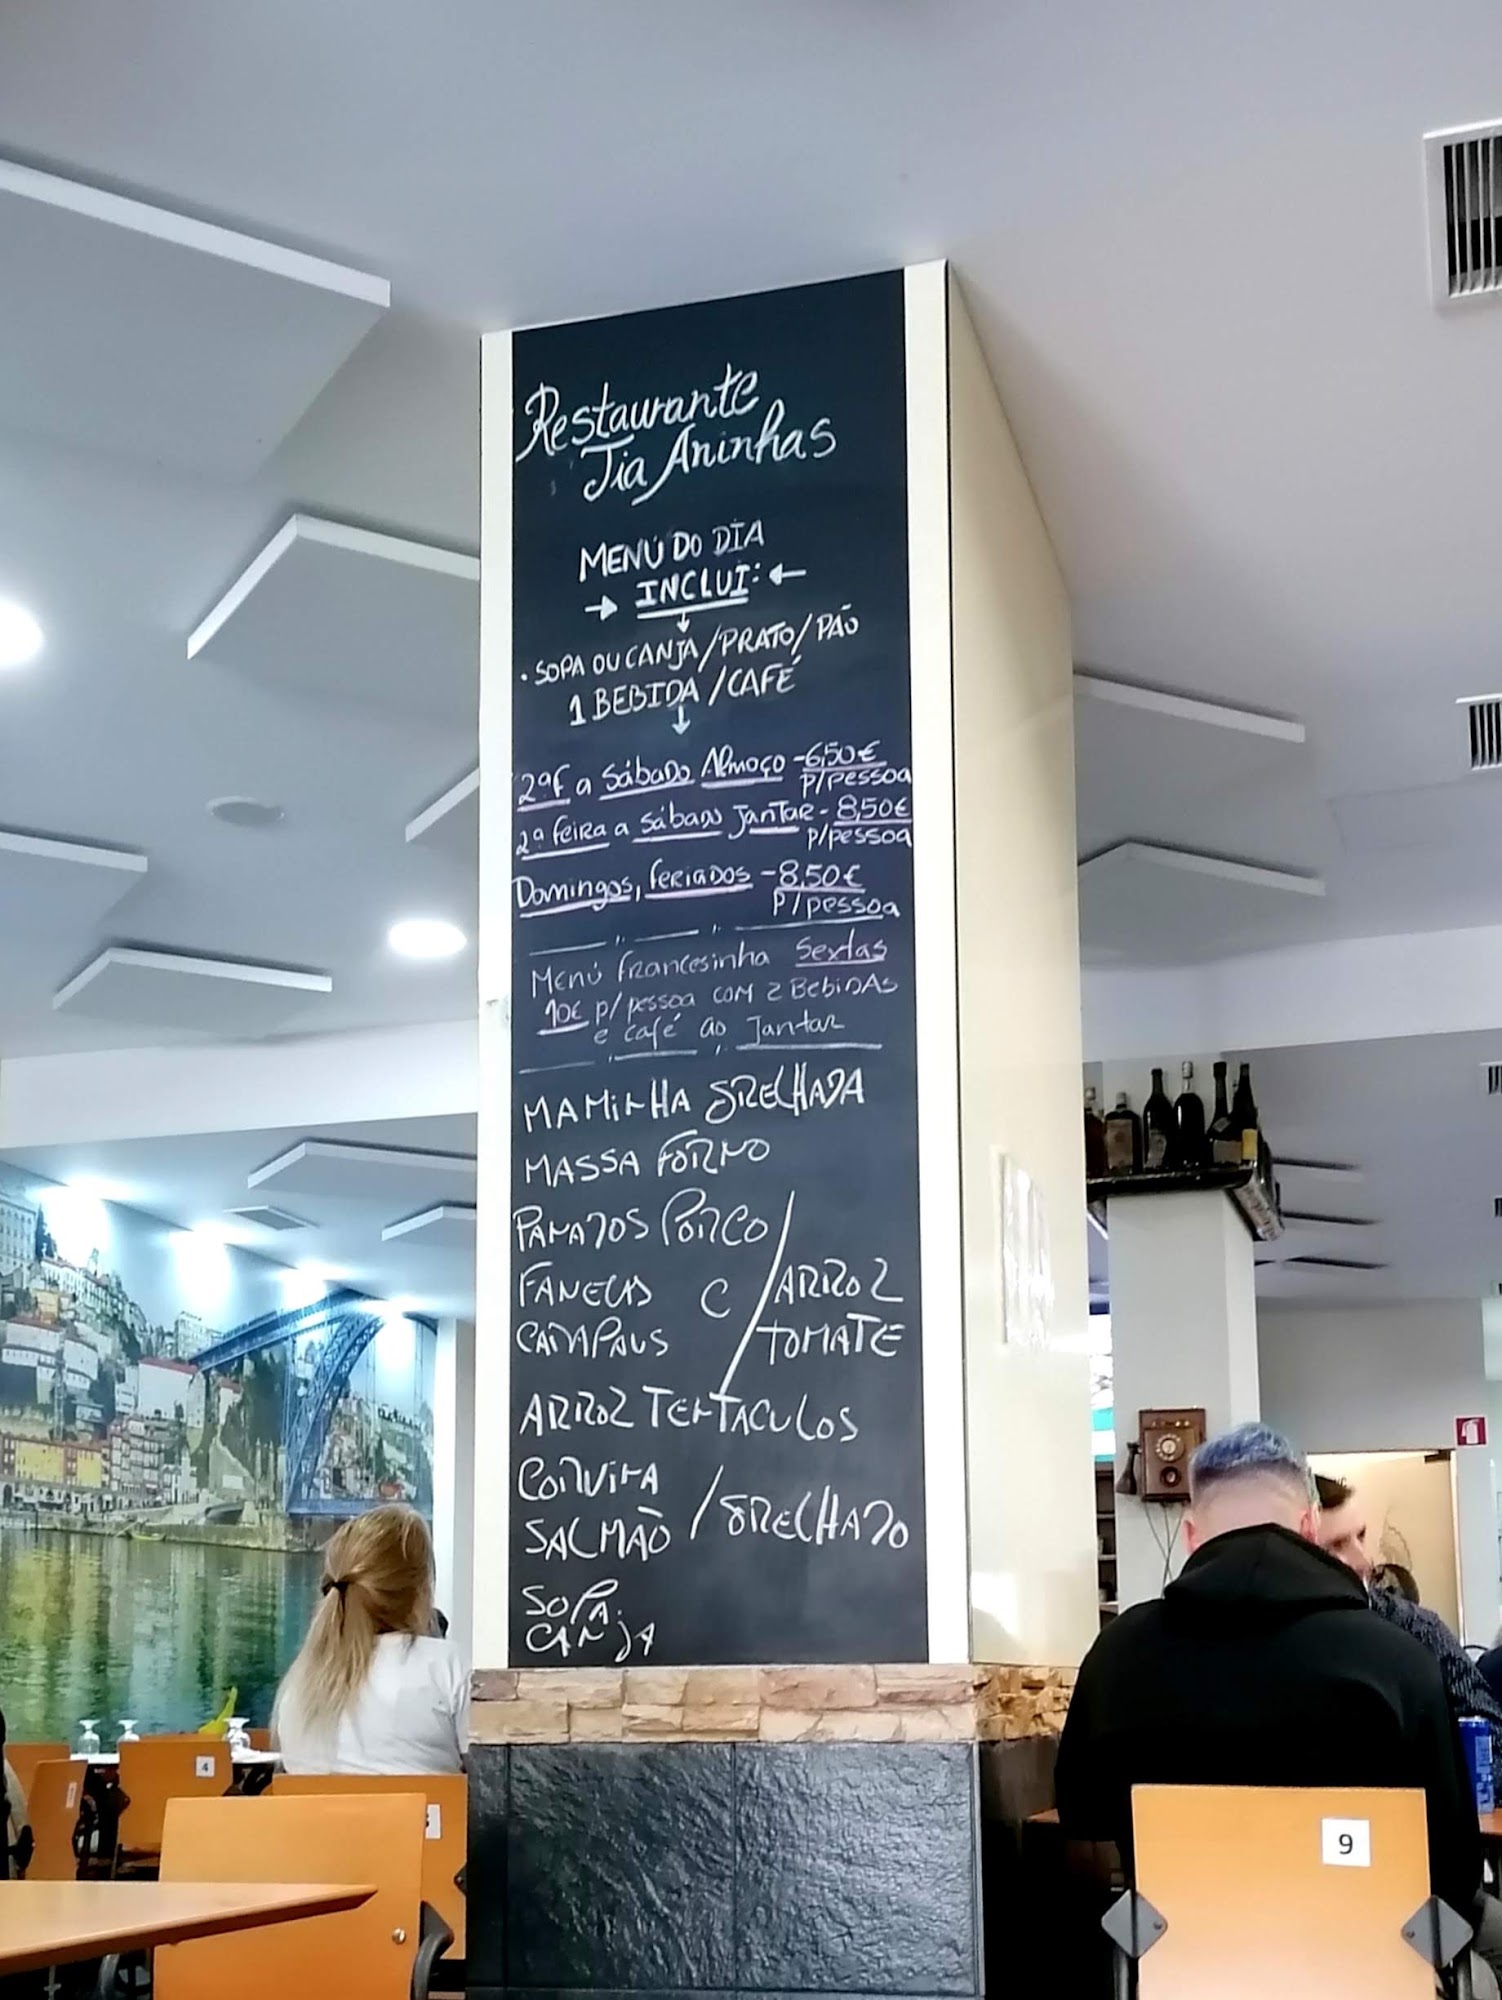 Restaurante
Tia Aninhas
MENÚ DO DIA
→ INCLUI: ←
• SOPA OU CANJA/PRATO/PÃO
1 BEBIDA/CAFÉ
2ªF a Sábado Almoço - 6,50€
p/pessoa
2ª feira a Sábado Jantar - 8,50€
p/pessoa
Domingos, feriados - 8,50€
P/pessoa
Menú francesinha Sextas
10€ p/pessoa com 2 Bebidas
e café ao Jantar
MAMINHA GRELHADA
MASSA FORNO
PANADOS PORCO
FANECAS C/ ARROZ
CARAPAUS TOMATE
ARROZ TENTACULOS
CORVINA
SALMÃO / GRELHADO
SOPA.
CANJA
4
9